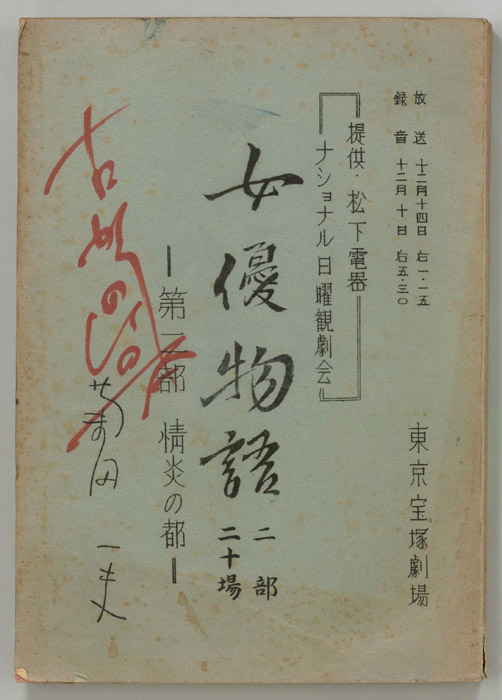 放送 十二月十四日 右一・一五
録音 十二月十日 右五・三〇
東京宝塚劇場
提供・松下電器
ナショナル日曜観劇会
女優物語 二部 二十場
―第二部 情炎の都―
菊田一夫